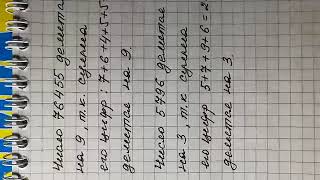 Число 76455 делится
на 9, т.к. сумма
его цифр: 7+6+4+5+5
делится на 9.
Число 5796 делится
на 3, т.к. сумма
его цифр 5+7+9+6=2
делется на 3.